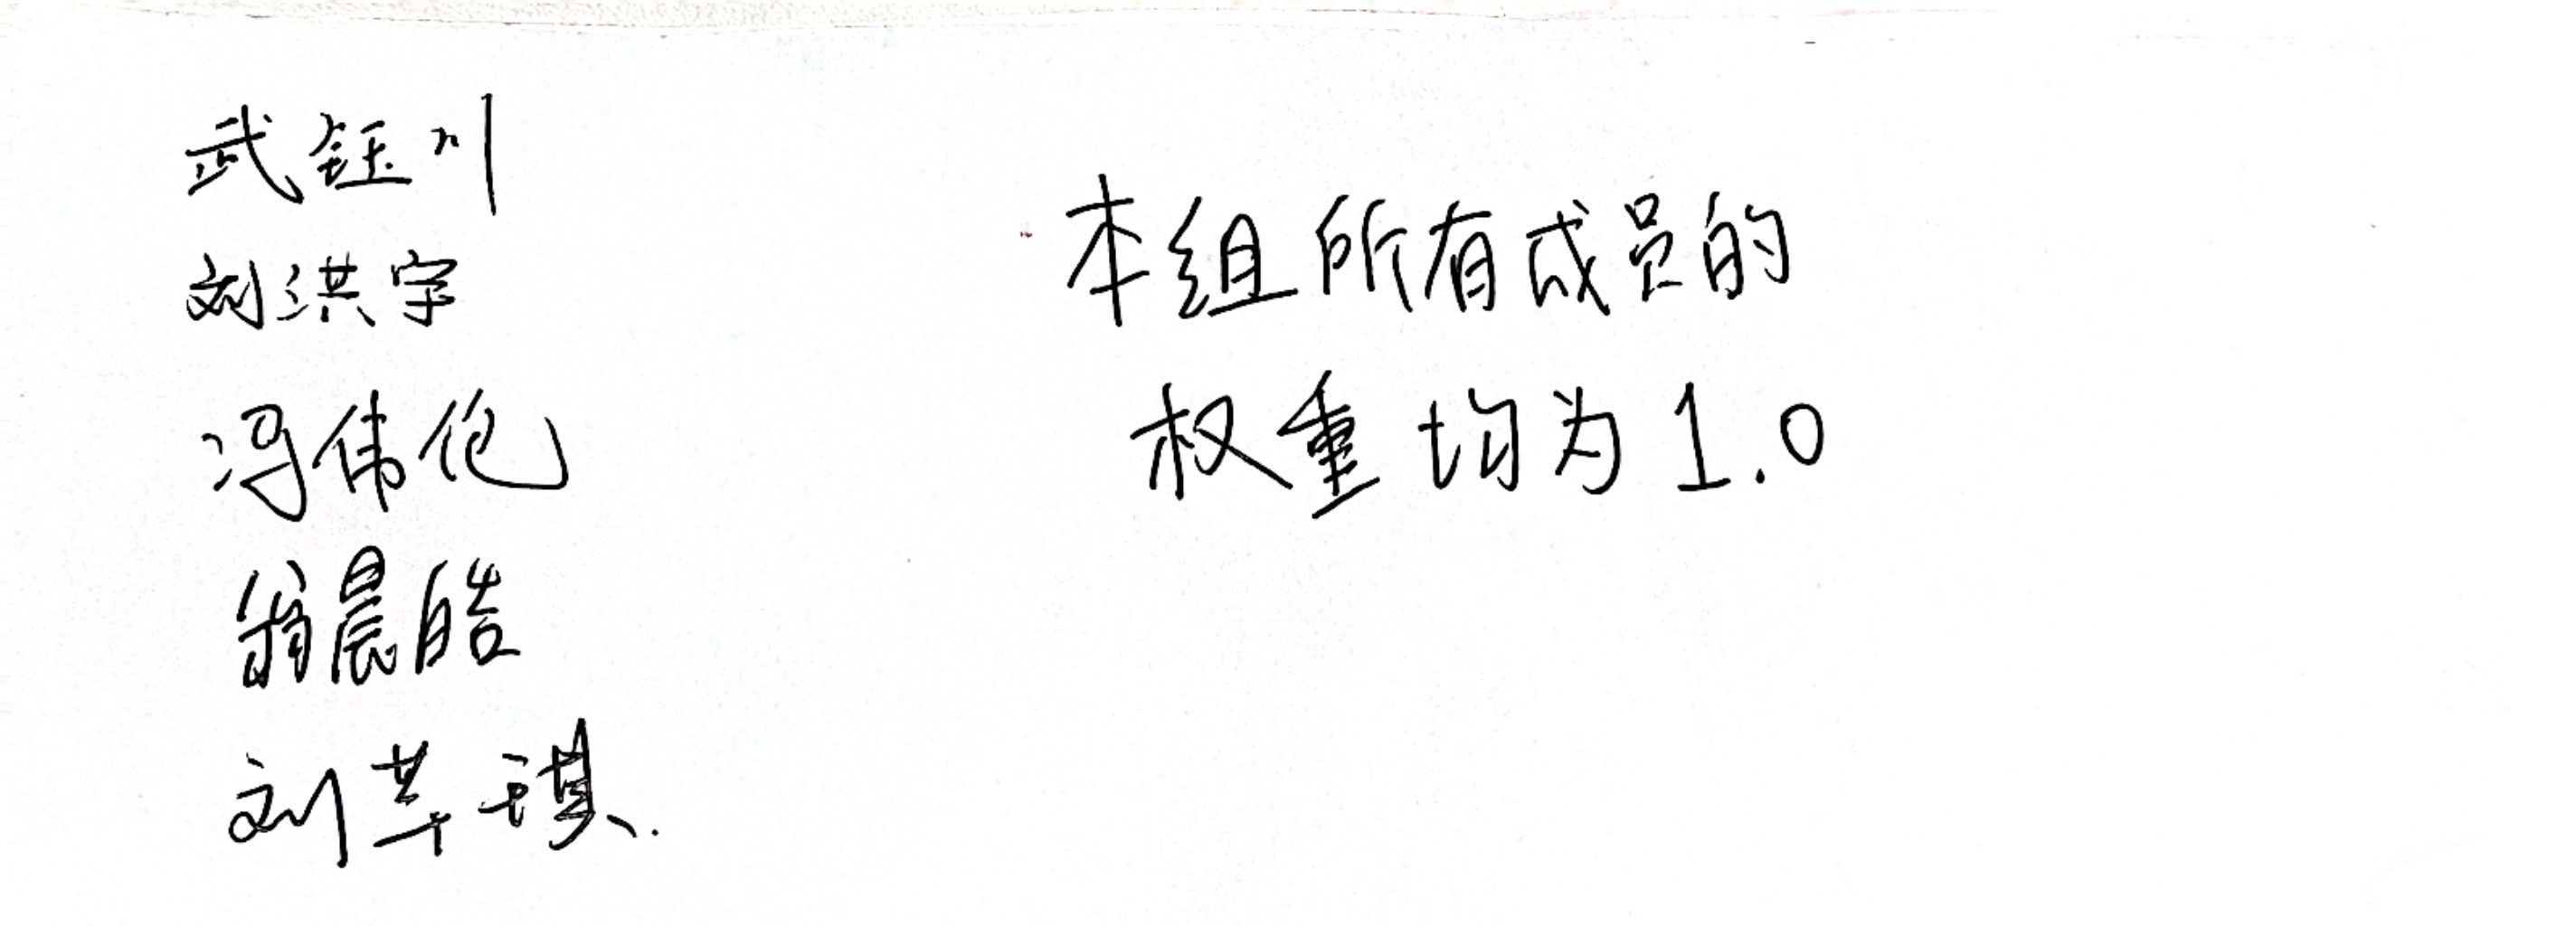 武钰川
刘洪宇
冯伟伦
翁晨皓
刘苹琪
本组所有成员的
权重均为1.0